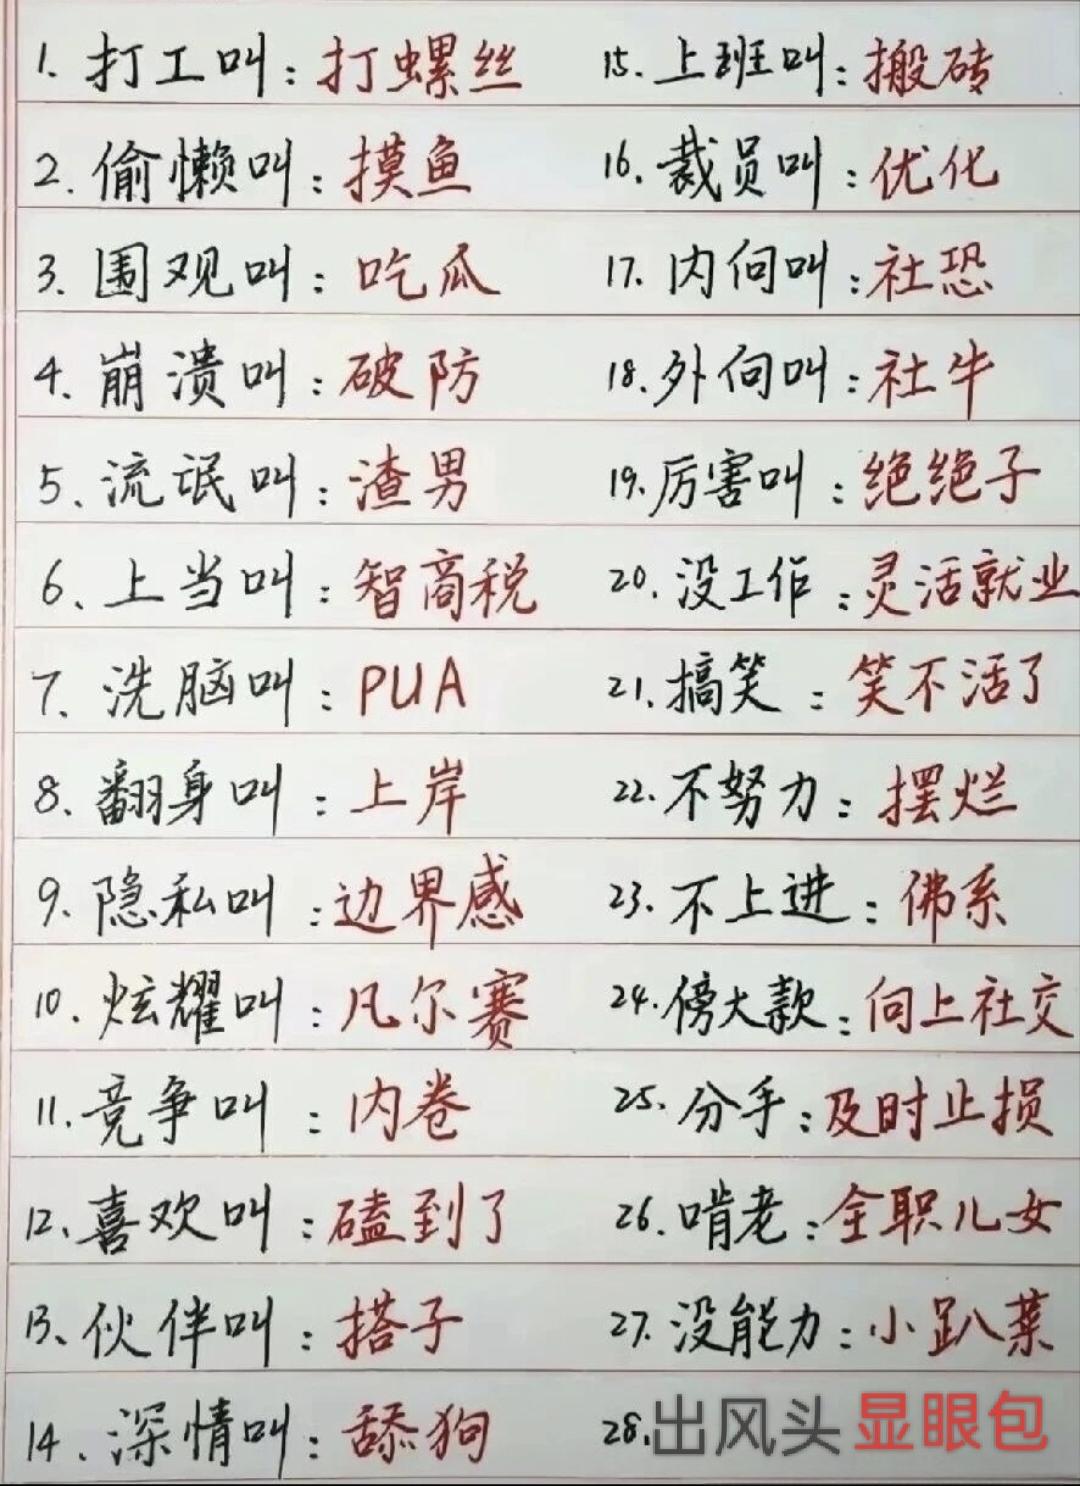 1. 打工叫：打螺丝
2. 偷懒叫：摸鱼
3. 围观叫：吃瓜
4. 崩溃叫：破防
5. 流氓叫：渣男
6、上当叫：智商税
7、洗脑叫：PUA
8. 翻身叫：上岸
9. 隐私叫：边界感
10. 炫耀叫：凡尔赛
11. 竞争叫：内卷
12、喜欢叫：磕到了
13、伙伴叫：搭子
14、深情叫：舔狗
15. 上班叫：搬砖
16. 裁员叫：优化
17. 内向叫：社恐
18. 外向叫：社牛
19. 厉害叫：绝绝子
20. 没工作：灵活就业
21. 搞笑：笑不活了
22. 不努力：摆烂
23. 不上进：佛系
24. 傍大款：向上社交
25. 分手：及时止损
26. 啃老：全职儿女
27. 没能力：小趴菜
28. 出风头 显眼包